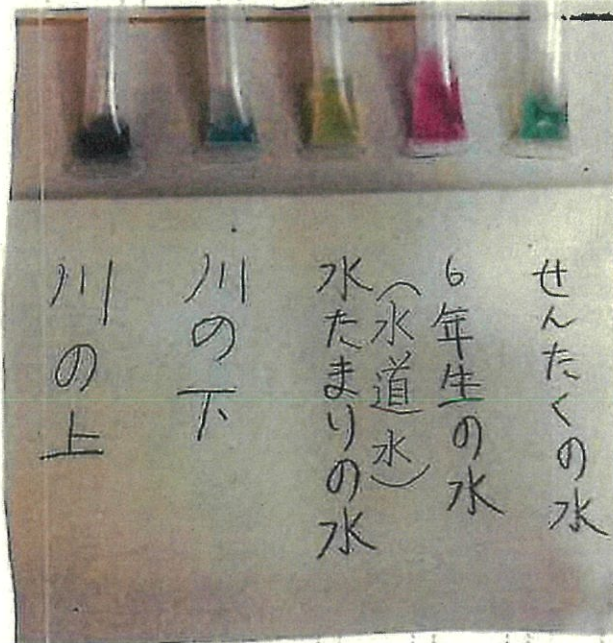 せんたくの水
6年生の水
(水道水)
水たまりの水
川の下
川の上